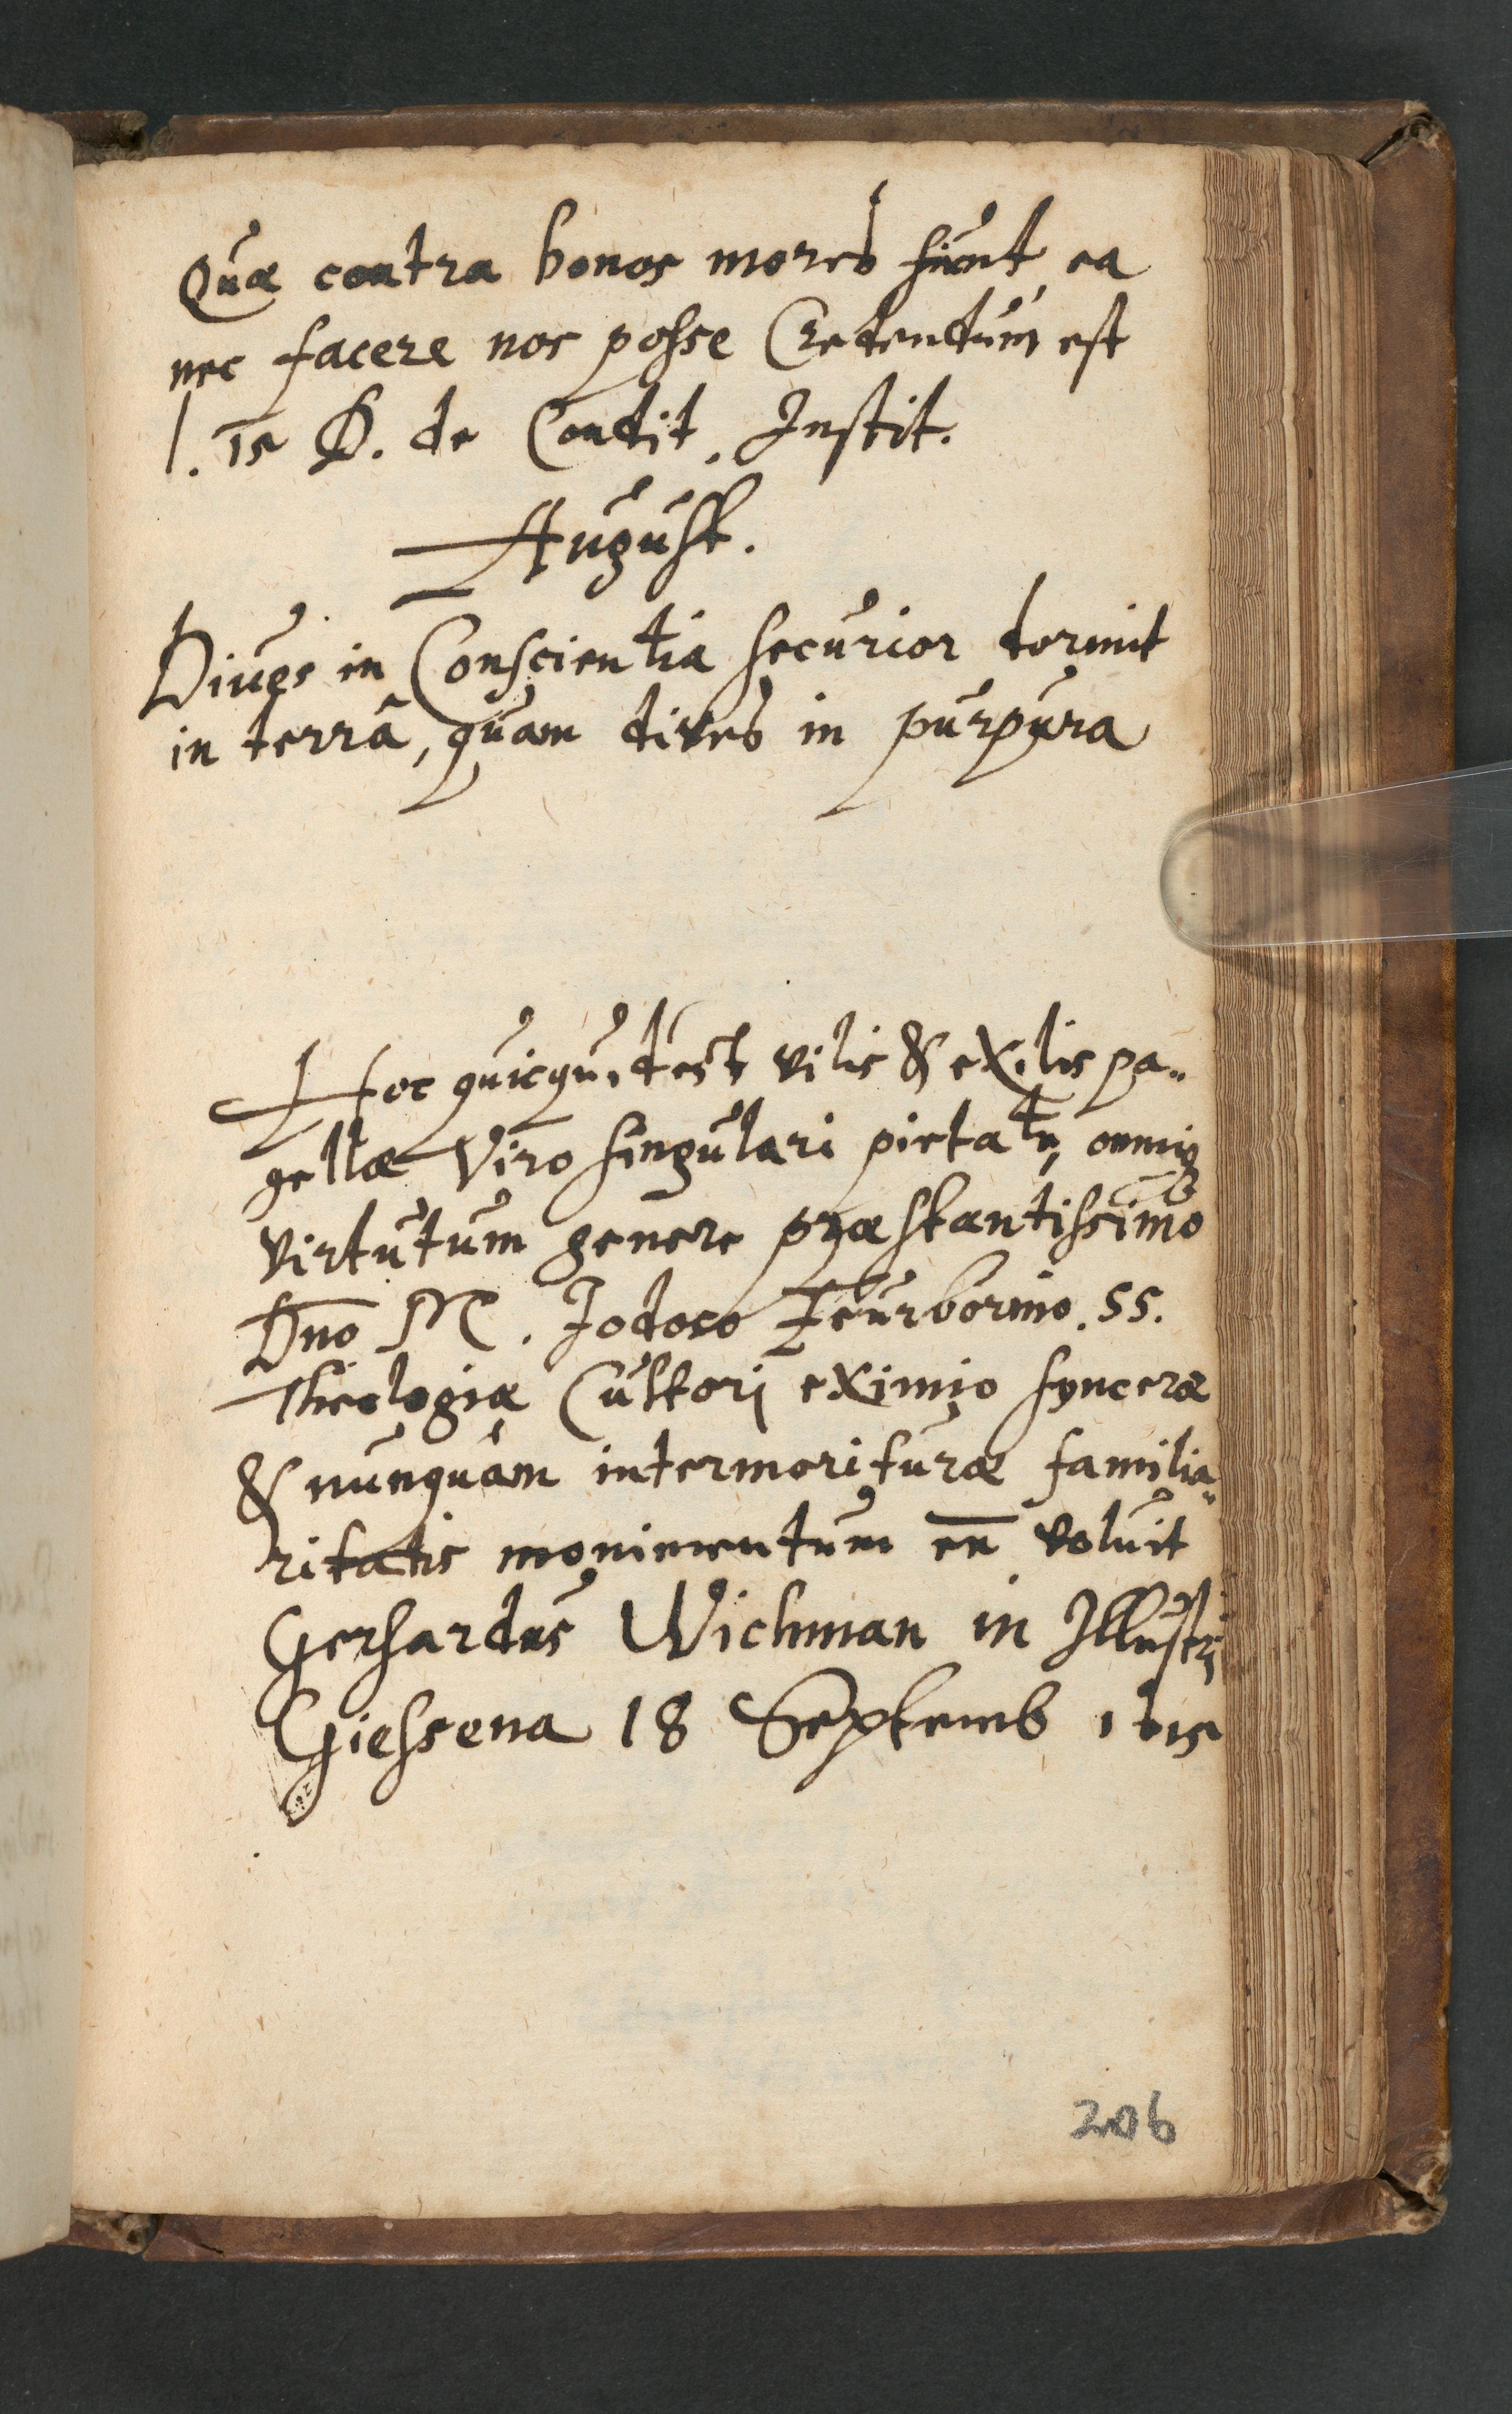 Quæ contra bonos mores fiunt, ea
nec facere nos posse Credendum est
l. 15 D. de Condit. Instit.
August.
Diues in Conscientia securior dormit
in terrâ, quam dives in purpura
Hoc quicquid est vilis & exilis pa-
gellæ Viro singulari pietate, omniq
virtutum genere præstantissimo
Dno M. Jodoco Feurbornio. SS.
Theologiæ Cultori eximio synceræ
& nunquam intermorituræ familia-
ritatis monimentum eē voluit
Gerhardus Wichman in Illustri
Giessena 18 Septemb 1615
206